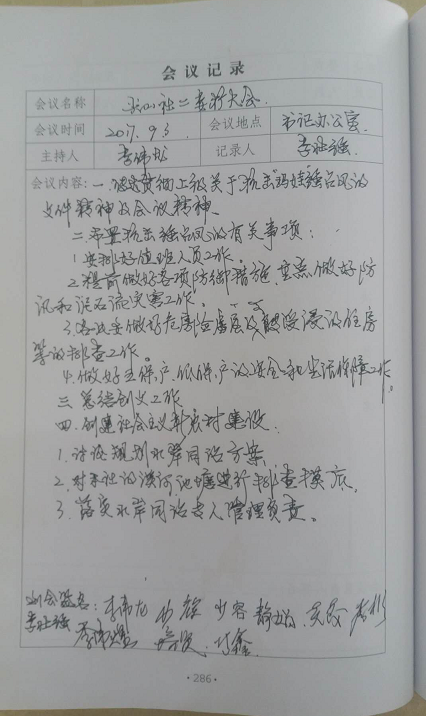 会议记录
会议名称 二委扩大会.
会议时间 2017.9.3 会议地点 书记办公室.
主持人 李伟龙 记录人 李壮强.
会议内容: 一.传达贯彻上级关于抗击玛娃强台风的
文件精神及会议精神.
二.布置抗击强台风的有关事项:
1.安排好值班人员工作.
2.提前做好各项防御措施,重点做好防
汛和泥石流灾害工作.
3.各 要做好危房险房屋及 受浸没住房
等的排查工作。
4.做好五保户.低保户的安全和生活保障工作。
三.总结创文工作
四.创建社会主义新农村建设.
1.讨论规划水岸同治方案
2.对本社的溪河池塘进行排查摸底.
3.落实水岸同治专人管理负责。
会签名: 李伟龙
李壮强
·286·